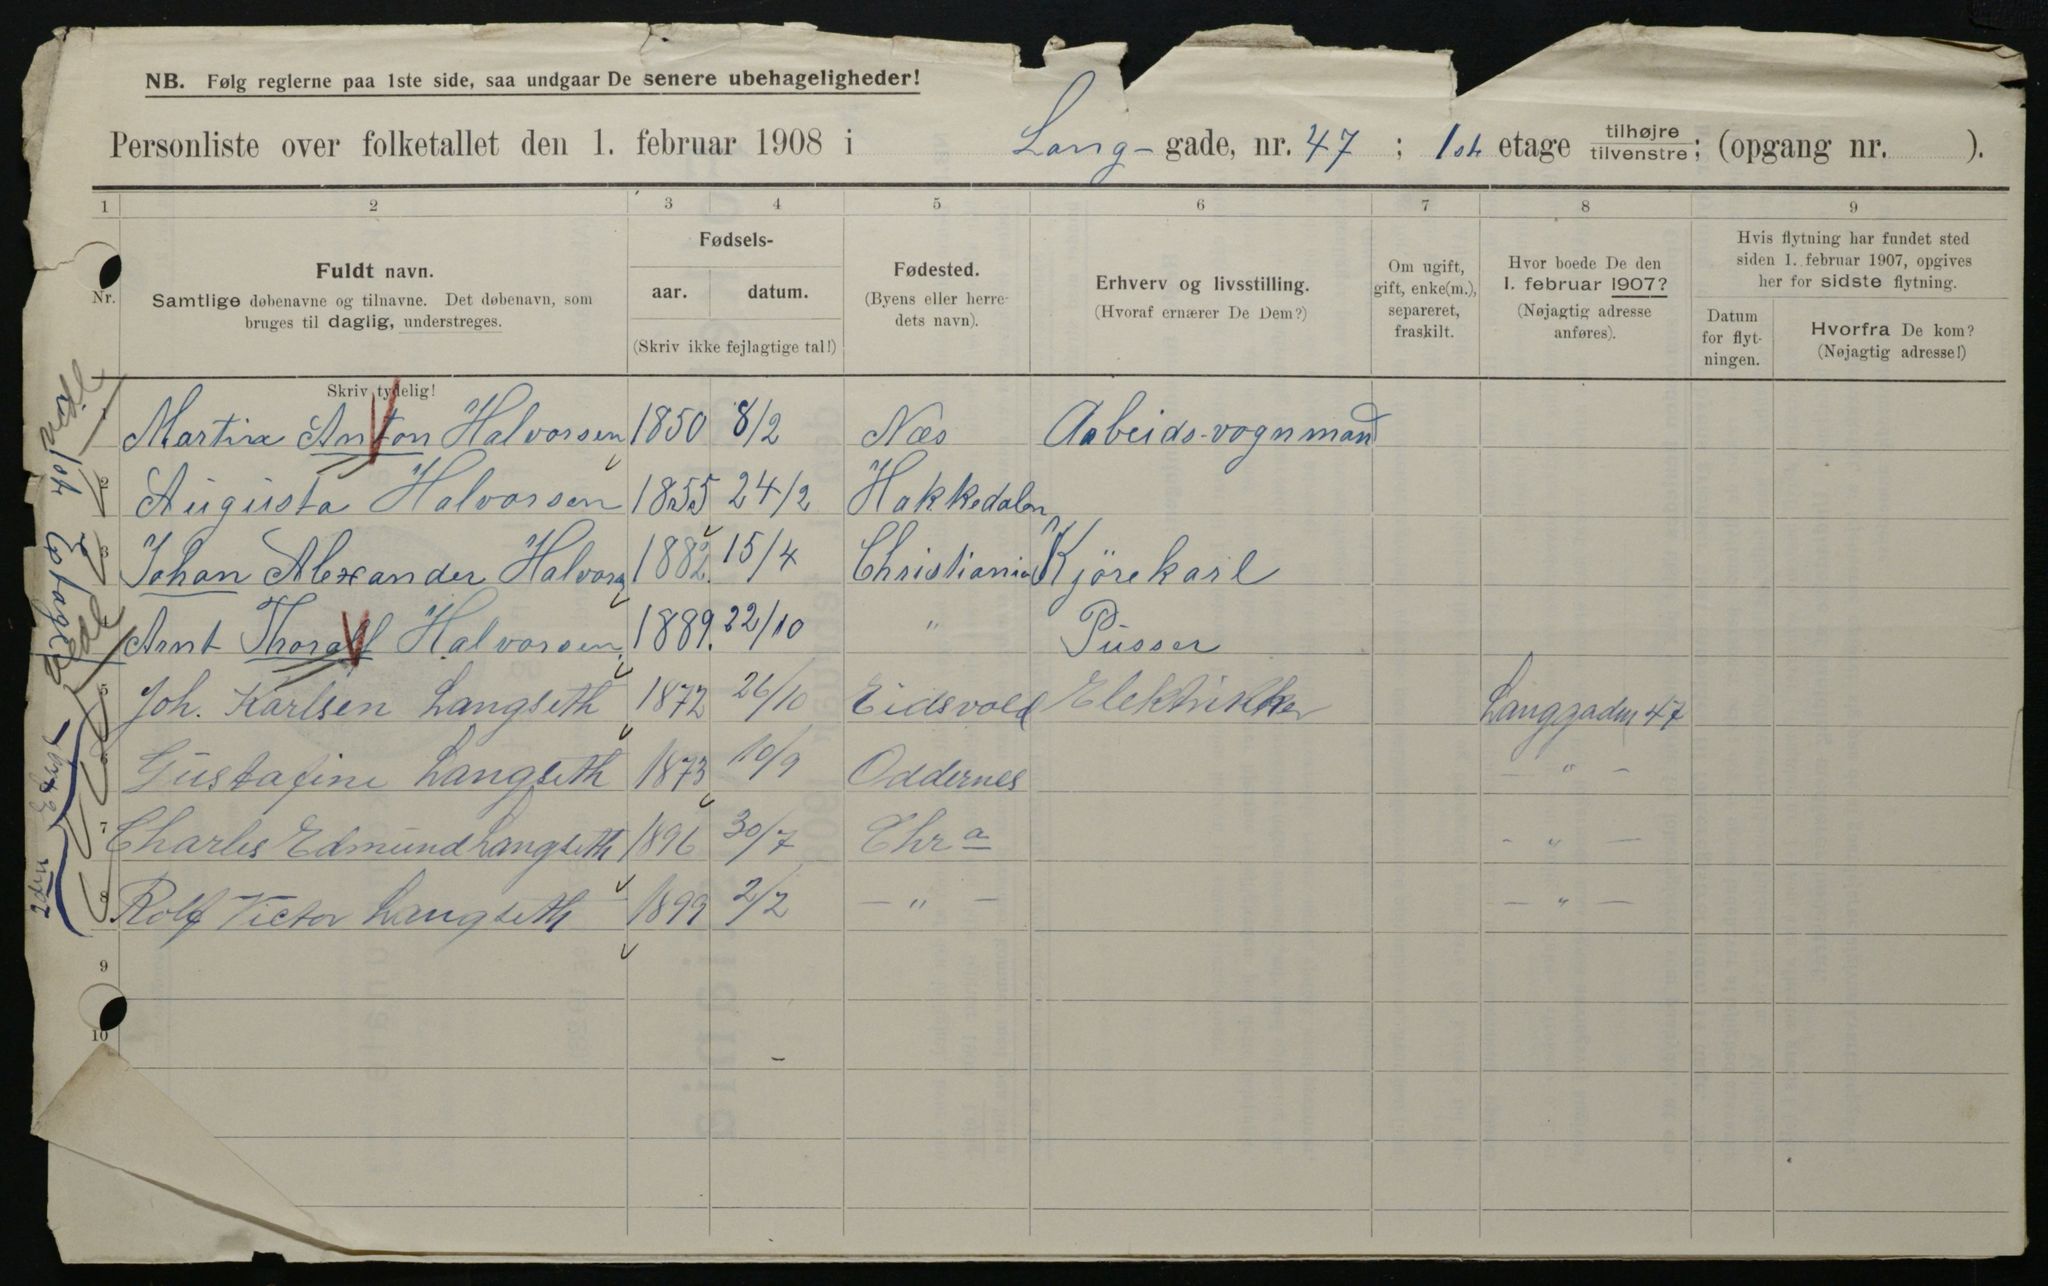 NB. Følg reglerne paa 1ste side, saa undgaar De senere ubehageligheder!
Personliste over folketallet den 1. februar 1908 i Lang- gade, nr. 47 ; 1ste etage tilhøjre tilvenstre; (opgang nr. ).
1 2 3 4 5 6 7 8 9
Nr.
Fuldt navn.
Samtlige døbenavne og tilnavne. Det døbenavn, som
bruges til daglig, understreges.
Fødsels-
aar. datum.
(Skriv ikke fejlagtige tal!)
Fødested.
(Byens eller herre-
dets navn).
Erhverv og livsstilling.
(Hvoraf ernærer De Dem?)
Om ugift,
gift, enke(m.),
separeret,
fraskilt.
Hvor boede De den
1. februar 1907?
(Nøjagtig adresse
anføres).
Hvis flytning har fundet sted
siden 1. februar 1907, opgives
her for sidste flytning.
Datum
for flyt-
ningen.
Hvorfra De kom?
(Nøjagtig adresse!)
Skriv tydelig!
1 Martin Anton Halvorsen 1850 8/2 Næs Aabeids-vognmand
2 Augusta Halvorsen 1855 24/2 Hakkedalen
3 Johan Alexander Halvorsn 1882. 15/4 Christiania Kjörekarl
Arnt Thoralf Halvorsen. 1889. 22/10 " Pusser
5 Joh. Karlsen Langseth 1872 26/10 Eidsvold Elektrikker Langgaden 47
6 Gustafine Langseth 1873 10/9 Oddernes — " —
7 Charles Edmund Langseth 1896 30/7 Chr a - " —
8 Rolf Victor Langseth 1899 2/2 — " — — " —
9
10